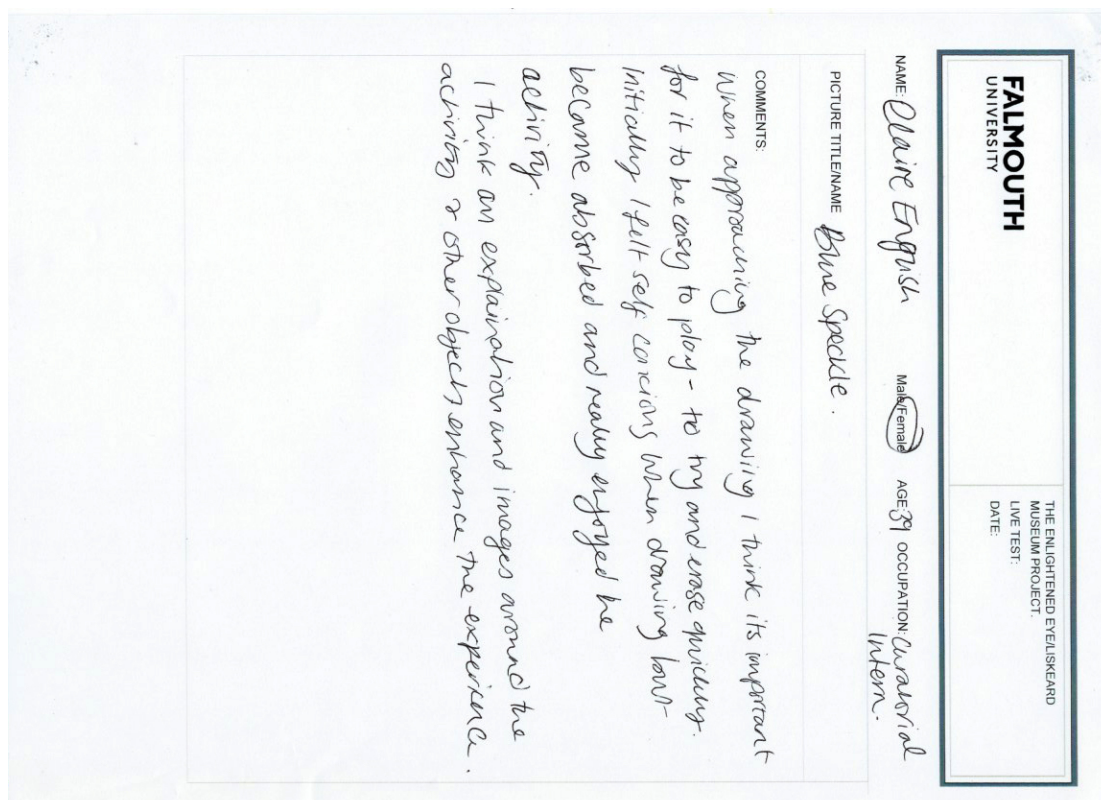 FALMOUTH
UNIVERSITY
THE ENLIGHTENED EYE/LISKEARD
MUSEUM PROJECT.
LIVE TEST:
DATE:
NAME: Claire English Male/Female AGE: 39 OCCUPATION: Curatorial
Intern.
PICTURE TITLE/NAME Blue Speckle.
COMMENTS:
When approaching the drawing I think its important
for it to be easy to play - to try and erase quickly.
Initially I felt self concious when drawing but -
became absorbed and really enjoyed he
activity.
I think an explaination and images around the
activity & other objects enhance the experience.